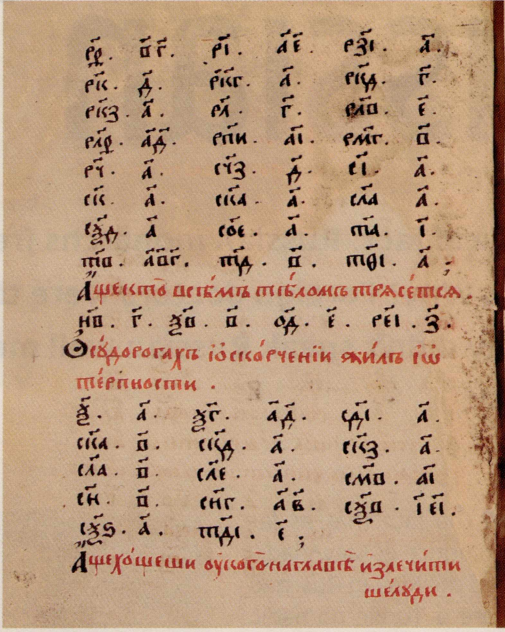 в҃г . рі҃ . а҃е . рзі҃ . а҃ .
рк҃ . д҃ . рк҃г . а҃ . рк҃д . г҃ .
рк҃з . а҃ . рл҃ . г҃ . рл҃в . е҃ .
а҃д . рп҃и . а҃і . рм҃г . в҃ .
рч҃ . а҃ . сч҃з . д҃ . сі҃ . а҃ .
ск҃ . а҃ . ск҃а . а҃ . сл҃а . а҃ .
сѯ҃д . а҃ . со҃е . а҃ . т҃а . і҃ .
ті҃в . а҃вг . т҃д . в҃ . тѳ҃і . а҃ ;
Аще кто̀ всѣ́мъ тѣ́ломъ трѧсе́тсѧ
н҃в . г҃ . ѯ҃в . в҃ . о҃д . е҃ . ре҃і . з҃ .
Ѳеу́дорогахъ іѡ скорченїи жилъ іѡ
те́рпности .
ѯ҃ . а҃ . ѯ҃г . а҃д . сд҃і . а҃ .
ск҃а . в҃ . ск҃д . а҃ . ск҃з . а҃ .
сл҃а . в҃ . сл҃е . а҃ . см҃в . а҃і
сн҃ . в҃ . сн҃г . а҃в . сѯ҃в . і҃еі .
сѯ҃ѕ . а҃ . тд҃і . е҃ ;
Аще хо́щеши оу кого̀ на главѣ̀ излечи́ти
ше́луди .